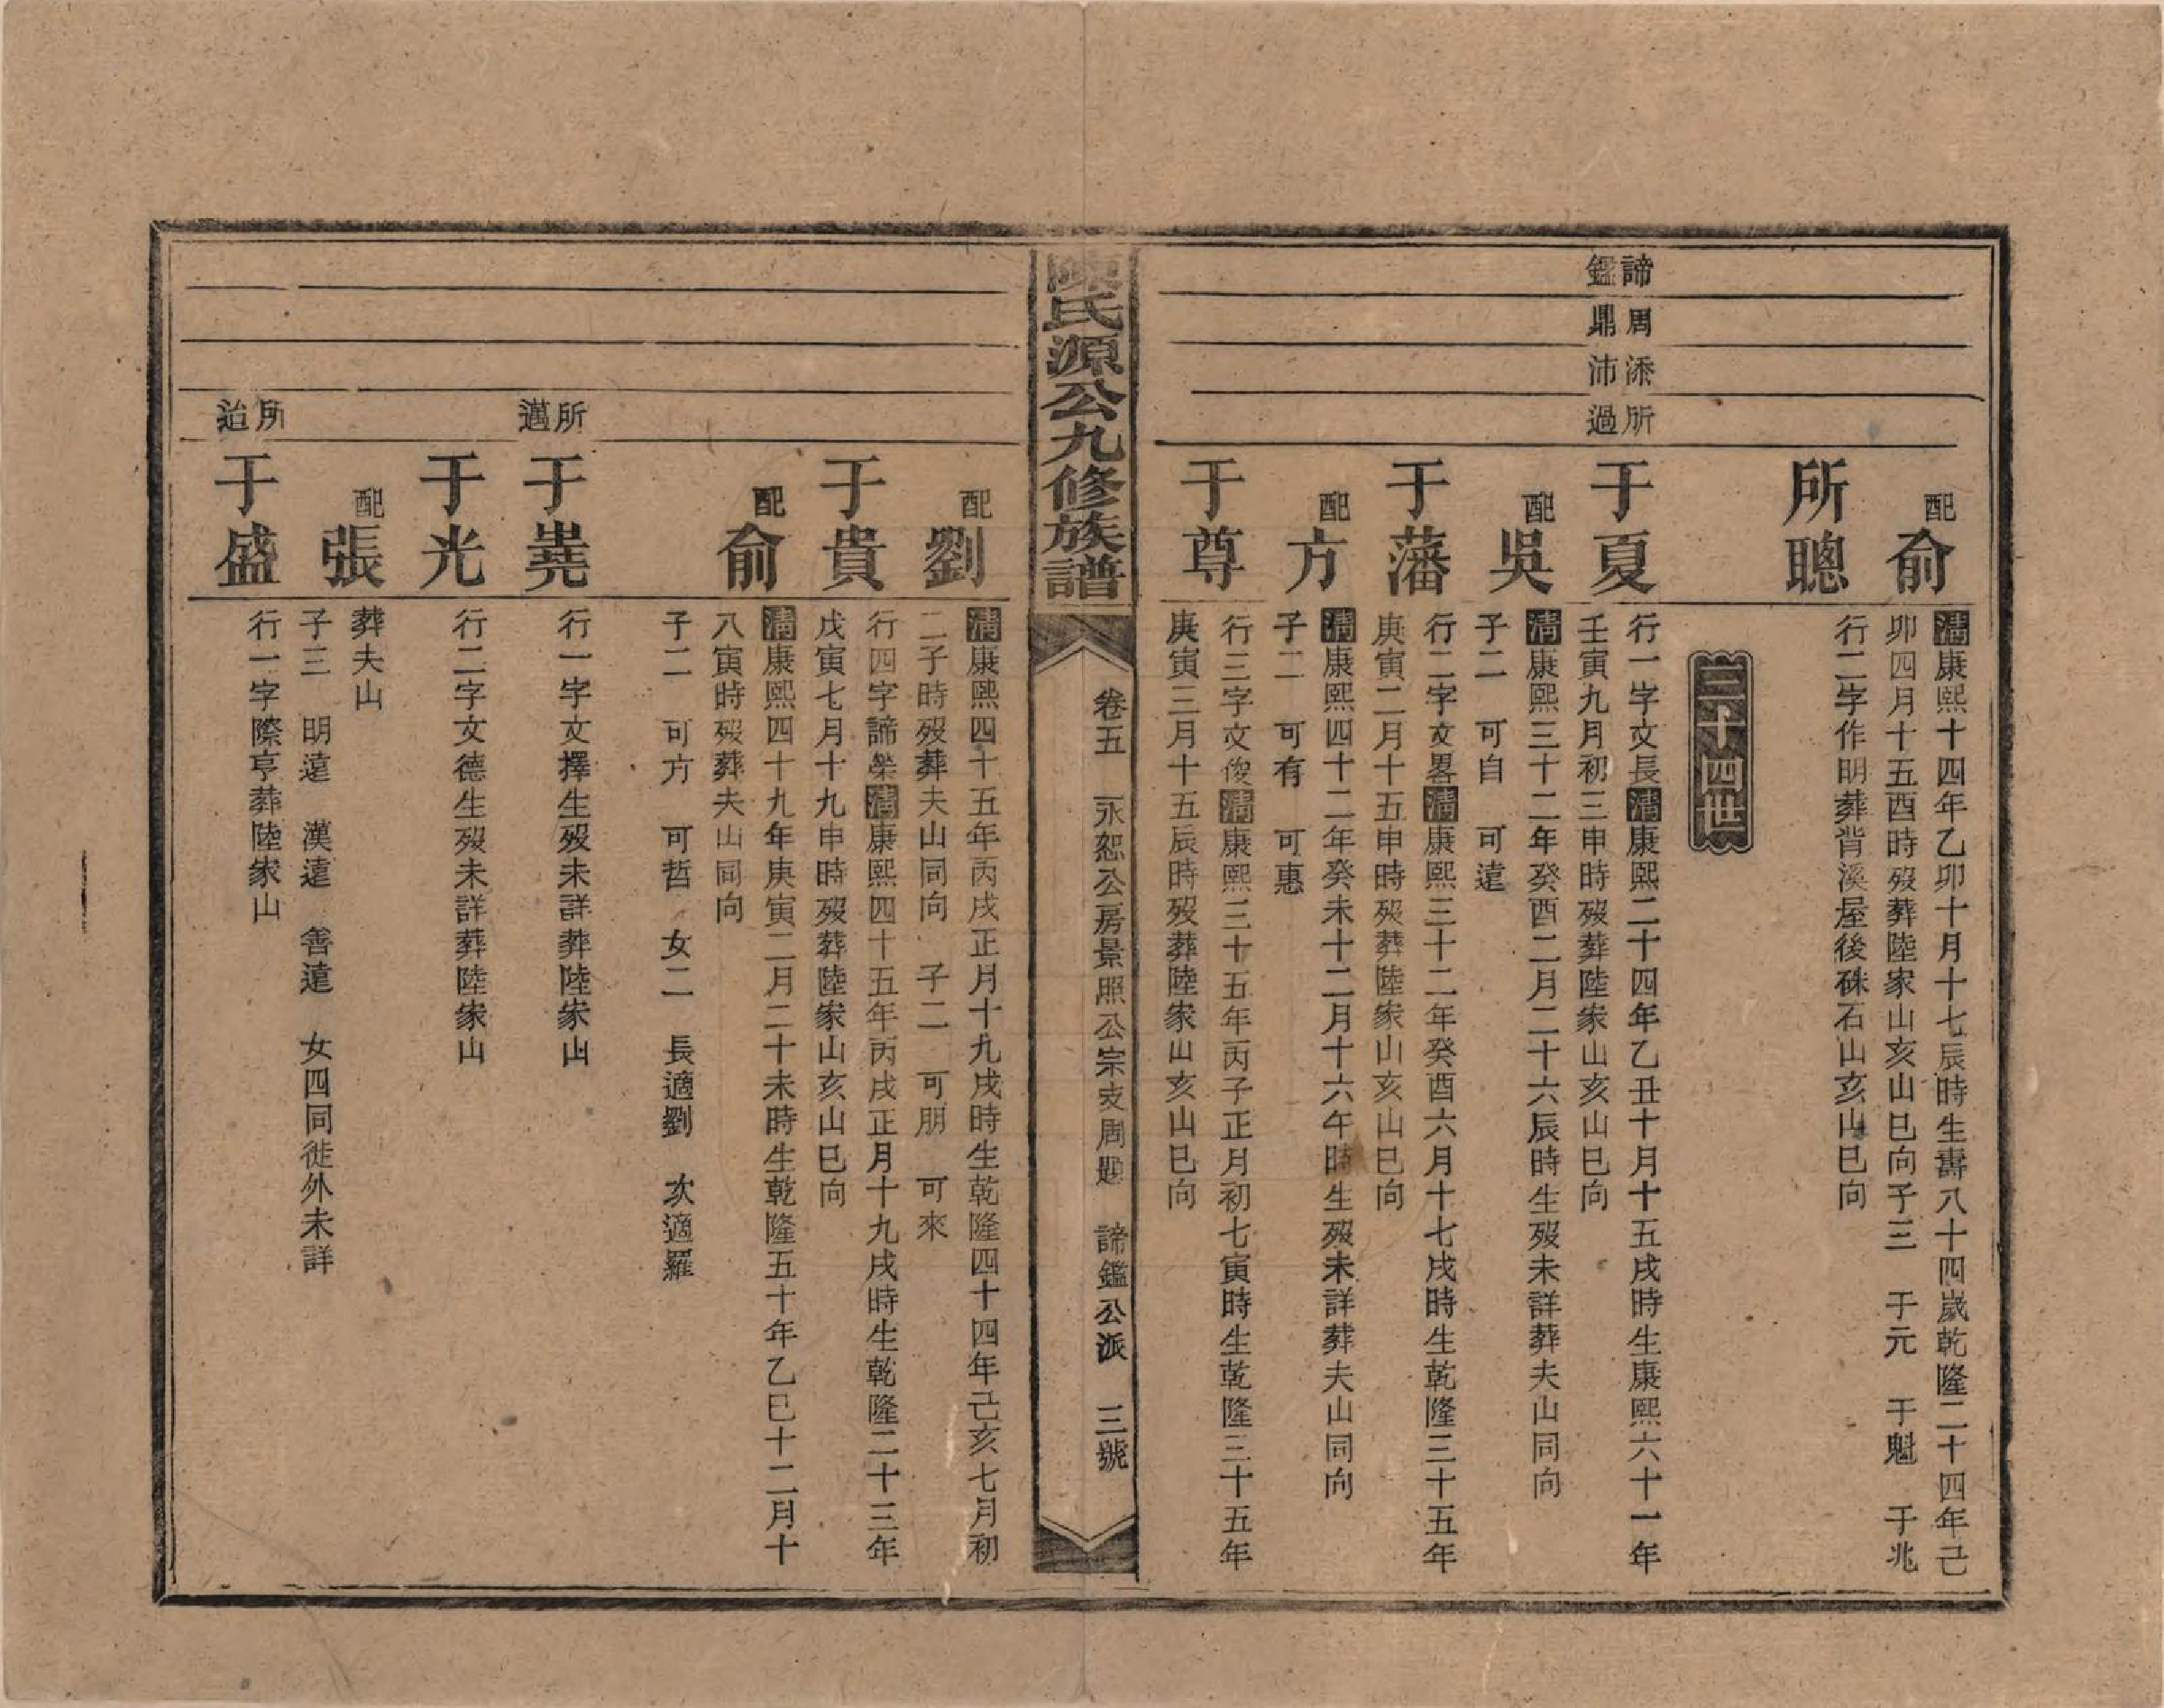 配俞
清康熙十四年乙卯十月十七辰時生壽八十四歲乾隆二十四年己
卯四月十五酉時歿葬陸家山亥山巳向子三 于元 于魁 于兆
所聰
行二字作明葬背溪屋後硃石山亥山巳向
三十四世
諦 周 添 所
鑑 鼎 沛 過
于夏
行一字文長清康熙二十四年乙丑十月十五戌時生康熙六十一年
壬寅九月初三申時歿葬陸家山亥山巳向
配吳
清康熙三十二年癸酉二月二十六辰時生歿未詳葬夫山同向
子二 可自 可遠
于藩
行二字文畧清康熙三十二年癸酉六月十七戌時生乾隆三十五年
庚寅二月十五申時歿葬陸家山亥山巳向
配方
清康熙四十二年癸未十二月十六午時生歿未詳葬夫山同向
子二 可有 可惠
于尊
行三字文俊清康熙三十五年丙子正月初七寅時生乾隆三十五年
庚寅三月十五辰時歿葬陸家山亥山巳向
陳氏源公九修族譜
卷五 永恕公房景照公宗支周鼎 諦鑑公派 三號
配劉
清康熙四十五年丙戌正月十九戌時生乾隆四十四年己亥七月初
二子時歿葬夫山同向 子二 可朋 可來
于貴
行四字諦榮清康熙四十五年丙戌正月十九戌時生乾隆二十三年
戊寅七月十九申時歿葬陸家山亥山巳向
配俞
清康熙四十九年庚寅二月二十未時生乾隆五十年乙巳十二月十
八寅時歿葬夫山同向
子二 可方 可哲 女二 長適劉 次適羅
所
邁
于堯
行一字文擇生歿未詳葬陸家山
于光
行二字文德生歿未詳葬陸家山
配張
葬夫山
子三 明遠 漢遠 善遠 女四同徙外未詳
所
治
于盛
行一字際亨葬陸家山